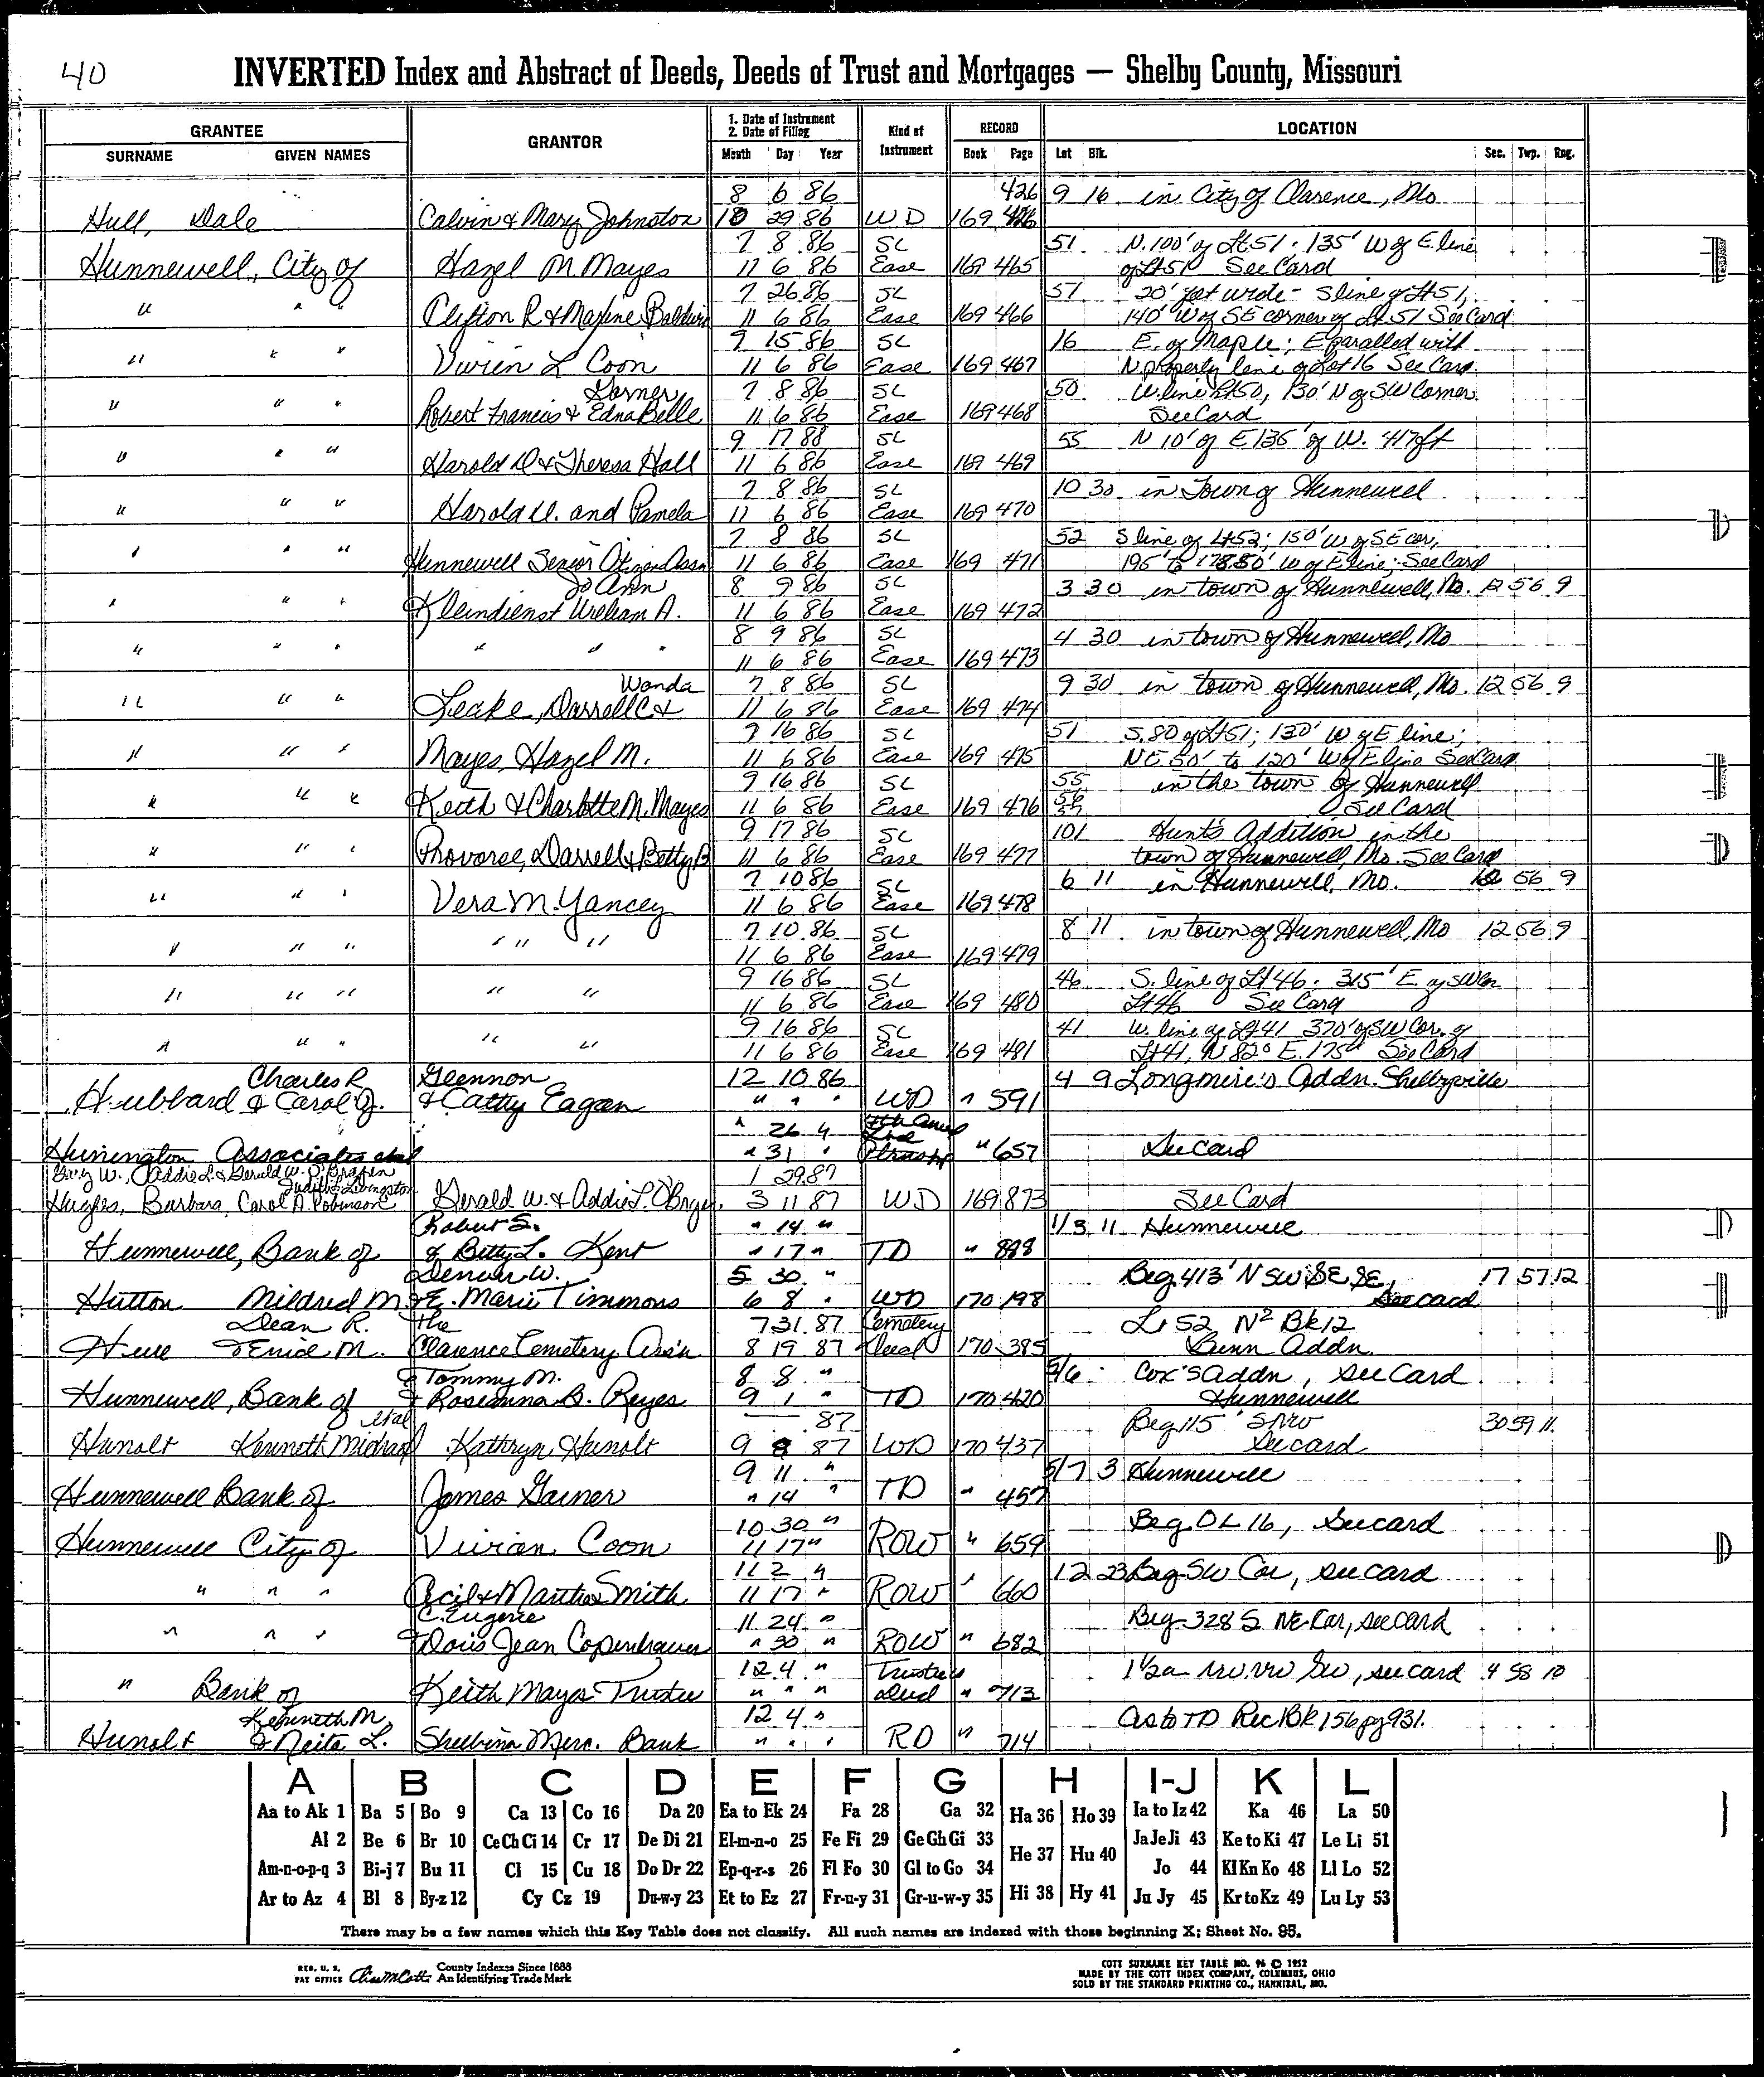 40
INVERTED Index and Abstract of Deeds, Deeds of Trust and Mortgages — Shelby County, Missouri
GRANTEE GRANTOR 1. Date of Instrument 2. Date of Filing Kind of Instrument RECORD LOCATION
SURNAME GIVEN NAMES Month Day Year Book Page Lot Blk. Sec. Twp. Rng.
8 6 86 426 9 16 in City of Clarence, Mo
Hull, Dale Calvin & Mary Johnston 10 29 86 WD 169
7 8 86 SL 51 N. 100' of Lt 51; 135' W of E. line
Hunnewell, City of Hazel M Mayes 11 6 86 Ease 169 465 of Lt 51 See Card
7 26 86 SL 51 20' wide - S line of Lt 51,
" " " Clifton R & Maxine Baldwin 11 6 86 Ease 169 466 140' W of SE corner of Lt 51 See Card
9 15 86 SL 16 E. of Maple; E paralled with
" " " Vivien L Coon 11 6 86 Ease 169 467 N property line of Lot 16 See Card
Garner 7 8 86 SL 50 W. line Lt 50, 130' N of SW Corner
" " " Robert Francis & Edna Belle 11 6 86 Ease 169 468 See Card
9 17 88 SL 55 N 10' of E 135' of W. 417 ft
" " " Harold D & Theresa Hall 11 6 86 Ease 169 469
7 8 86 SL 10 30 in Town of Hunnewell
" " " Harold U. and Pamela 11 6 86 Ease 169 470
7 8 86 SL 52 S line of Lt 52; 150' W of SE cor,
" " " Hunnewell Senior Citizen Assn 11 6 86 Ease 169 471 195' to 178.50' W of E line; See Card
Jo Ann 8 9 86 SL 3 30 in town of Hunnewell, Mo. 12 56 9
" " " Kleindienst William A. 11 6 86 Ease 169 472
8 9 86 SL 4 30 in town of Hunnewell, Mo
" " " " " " 11 6 86 Ease 169 473
Wanda 7 8 86 SL 9 30 in town of Hunnewell, Mo. 12 56 9
" " " Leake, Darrell C & 11 6 86 Ease 169 474
7 16 86 SL 51 S. 80 of Lt 51; 130' W of E line;
" " " Mayes, Hazel M. 11 6 86 Ease 169 475 NE 50' to 120' W of E line See Card
9 16 86 SL 55 in the town of Hunnewell
" " " Keith & Charlotte M. Mayes 11 6 86 Ease 169 476 56 57 See Card
9 17 86 SL 101 Hunt's Addition in the
" " " Provorse, Darrell & Betty B 11 6 86 Ease 169 477 town of Hunnewell, Mo. See Card
7 10 86 SL 6 11 in Hunnewell, Mo. 12 56 9
" " " Vera M. Yancey 11 6 86 Ease 169 478
7 10 86 SL 8 11 in town of Hunnewell, Mo 12 56 9
" " " " " " 11 6 86 Ease 169 479
9 16 86 SL 46 S. line of Lt 46. 315' E. of SW Cor
" " " " " 11 6 86 Ease 169 480 Lt 46 See Card
9 16 86 SL 41 W. line of Lt 41 370' of SW Cor. of
" " " " " 11 6 86 Ease 169 481 Lt 41, N 82° E. 175' See Card
Charles R Glennon 12 10 86 4 9 Longmire's Addn. Shelbyville
Hubbard & Carol J. & Cathy Eagan " " " WD " 591
" 26 "
Hunington Associates etal " 31 " " 657 See Card
Gary W., Addie L & Gerald W. O'Brien 1 29 87
Judith L Livingston
Hughes, Barbara, Carol A. Robinson Gerald W. & Addie L. O'Bryen 3 11 87 WD 169 873 See Card
Robert S. " 14 " 1/3 11 Hunnewell
Hunnewell, Bank of & Betty L. Kent " 17 " TD " 898
Denver W. 5 30 " Beg. 413' N SW SE SE, 17 57 12
Hutton Mildred M & E. Marie Timmons 6 8 " WD 170 198 See card
Dean R. The 7 31 87 Cemetery Lt 52 N² Bk 12
& Enid M. Clarence Cemetery Ass'n 8 19 87 Deed 170 385 Bunn Addn.
Tommy M. 8 8 " 5/6 Cox's Addn, See Card
Hunnewell, Bank of & Roseanna B. Reyes 9 1 " TD 170 420 Hunnewell
etal 87 Beg 115' S NW 30 59 11
Hunolt Kenneth Michael Kathryn Hunolt 9 8 87 WD 170 437 See card
9 11 " 5/7 3 Hunnewell
Hunnewell Bank of James Garner " 14 " TD " 457
10 30 " Beg OL 16, See card
Hunnewell City of Vivian Coon 11 17 " ROW " 659
11 2 " 12 23 Beg SW Cor, see card
" " " Cecil & Martha Smith 11 17 " ROW " 660
C. Eugene 11 24 " Beg 328 S NE Cor, see card
" " " & Doris Jean Copenhaver " 30 " ROW " 682
12 4 " Trustees 1½ a NW NW SW, see card 4 58 10
" Bank of Keith Mayes Trustee " " " Deed " 713
Kenneth M 12 4 " As to TD Rec Bk 156 pg 931.
Hunolt & Neita L. Shelbina Merc. Bank " " " RD " 714
A B C D E F G H I-J K L
Aa to Ak 1 Ba 5 Bo 9 Ca 13 Co 16 Da 20 Ea to Ek 24 Fa 28 Ga 32 Ha 36 Ho 39 Ia to Iz 42 Ka 46 La 50
Al 2 Be 6 Br 10 Ce Ch Ci 14 Cr 17 De Di 21 El-m-n-o 25 Fe Fi 29 Ge Gh Gi 33 He 37 Hu 40 Ja Je Ji 43 Ke to Ki 47 Le Li 51
Am-n-o-p-q 3 Bi-j 7 Bu 11 Cl 15 Cu 18 Do Dr 22 Ep-q-r-s 26 Fl Fo 30 Gl to Go 34 Jo 44 Kl Kn Ko 48 Ll Lo 52
Ar to Az 4 Bl 8 By-z 12 Cy Cz 19 Du-w-y 23 Et to Ez 27 Fr-u-y 31 Gr-u-w-y 35 Hi 38 Hy 41 Ju Jy 45 Kr to Kz 49 Lu Ly 53
There may be a few names which this Key Table does not classify. All such names are indexed with those beginning X; Sheet No. 95.
REG. U. S. PAT OFFICE County Indexes Since 1888 An Identifying Trade Mark
COTT SURNAME KEY TABLE NO. 96 © 1952
MADE BY THE COTT INDEX COMPANY, COLUMBUS, OHIO
SOLD BY THE STANDARD PRINTING CO., HANNIBAL, MO.